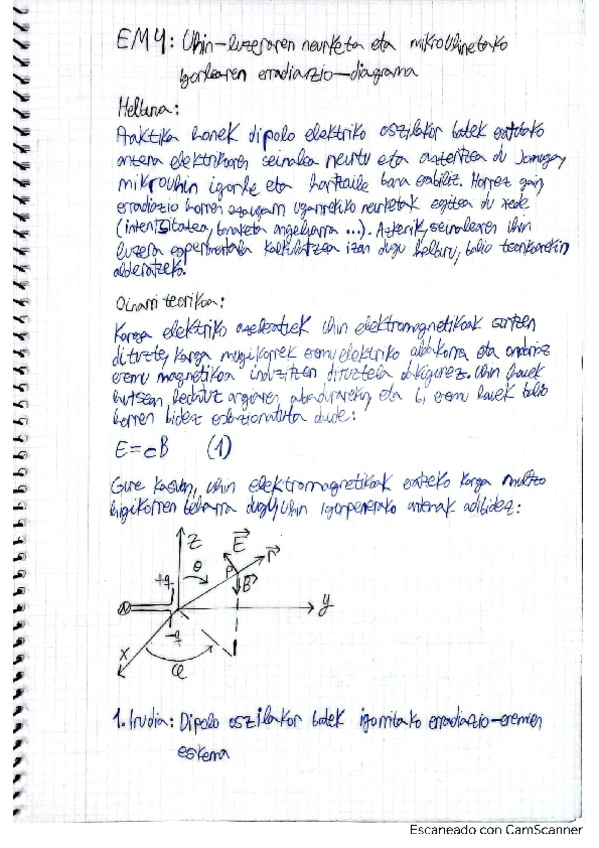 EM4: Uhin-luzeraren neurketa eta mikrouhinetako
igorlearen erradiazio-diagrama
Helburua:
Praktika honek dipolo elektriko oszilakor batek eratutako
antena elektrikoaren seinalea neurtu eta aztertzea du
mikrouhin igorle eta hartzaile bana erabiliz. Horrez gain,
erradiazio horren ezaugarri neurketak egitea du xede
(intentsitatea, angeluarra ...). Azkenik, seinalearen uhin
luzera esperimentala kalkulatzea izan dugu helburu, balio teorikoarekin
alderatzeko.
Oinarri teorikoa:
Karga elektriko azeleratuek uhin elektromagnetikoak sortzen
dituzte, karga mugikorrek eremu elektriko aldakorra eta ondorioz
eremu magnetikoa induzitzen dituztela dakigunez. Uhin hauek
hutsean argiaren abiaduraren, eta eremu hauek balio
horren bidez erlazionatuta daude:
E=cB (1)
Gure kasuan, uhin elektromagnetikoak sortzeko karga multzo
higikorren beharra dugu, uhin igorpenerako antenak adibidez:
z
E
r
θ
P
B
+q
y
-q
x
φ
1. Irudia: Dipolo oszilakor batek igorritako erradiazio-eremuen
eskema
Escaneado con CamScanner